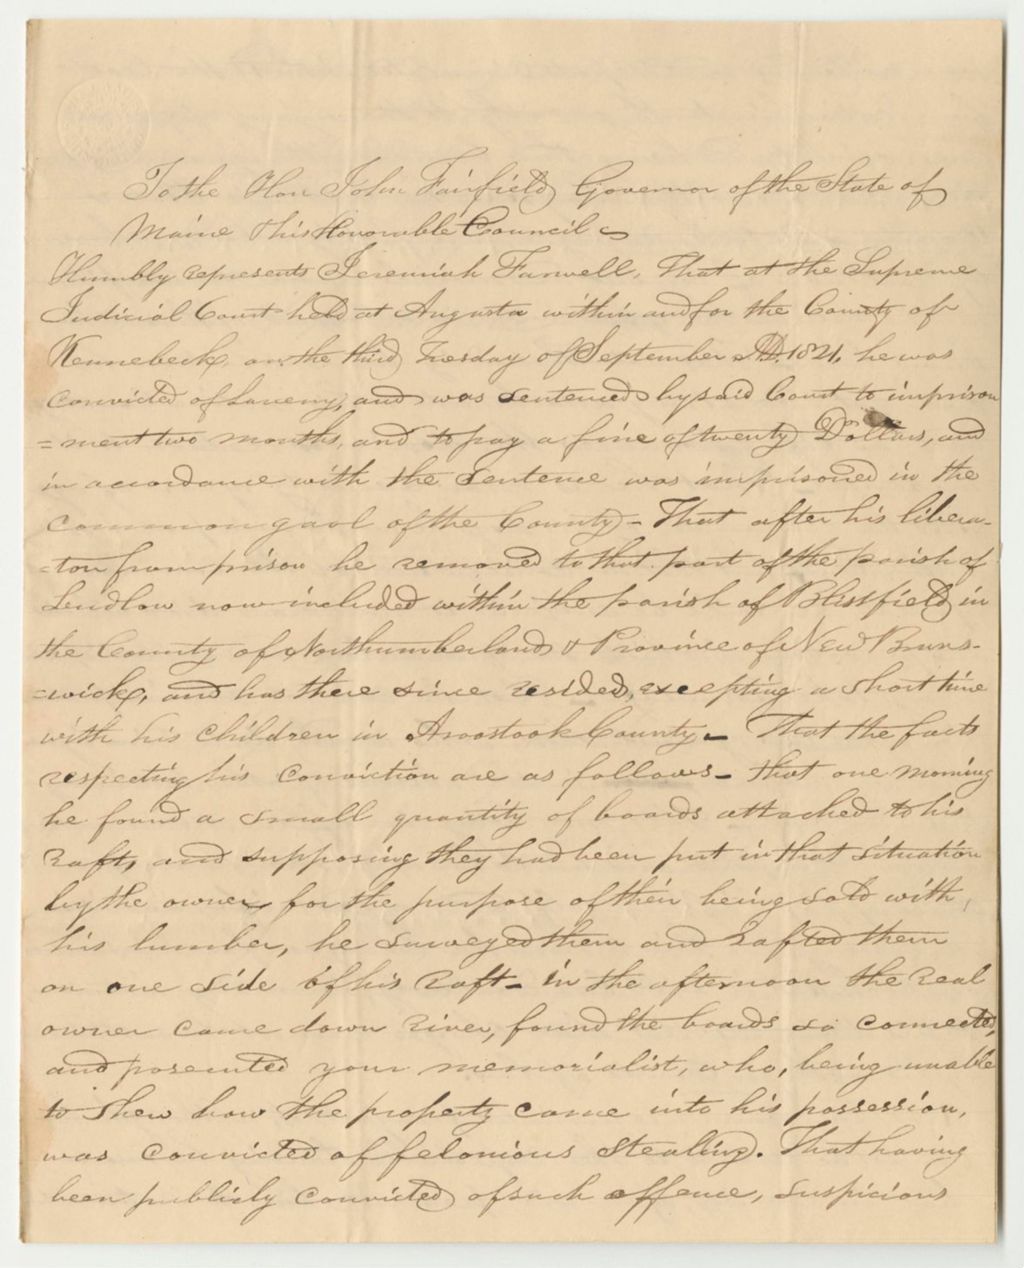 To the Hon John Fairfield Governor of the State of
Maine & his Honorable Council
Humbly represents Jeremiah Farwell, That at the Supreme
Judicial Court held at Augusta within and for the County of
Kennebeck, on the third Tuesday of September AD. 1821, he was
convicted of Larceny, and was sentenced by said Court to imprison
=ment two months, and to pay a fine of twenty Dollars, and
in accordance with the sentence was imprisoned in the
common gaol of the County - That after his libera-
=ton from prison he removed to that part of the parish of
Ludlow now included within the parish of Blissfield in
the County of Northumberland & Province of New Bruns-
=wick, and has there since resided, excepting a short time
with his children in Aroostook County - That the facts
respecting his conviction are as follows - that one morning
he found a small quantity of boards attached to his
raft, and supposing they had been put in that situation
by the owner for the purpose of their being sold with
his lumber, he surveyed them and rafted them
on one side of his raft - in the afternoon the real
owner came down river, found the boards so connected,
and prosecuted your memorialist, who, being unable
to shew how the property came into his possession,
was convicted of felonious stealing. That having
been publicly convicted of such offence, suspicious